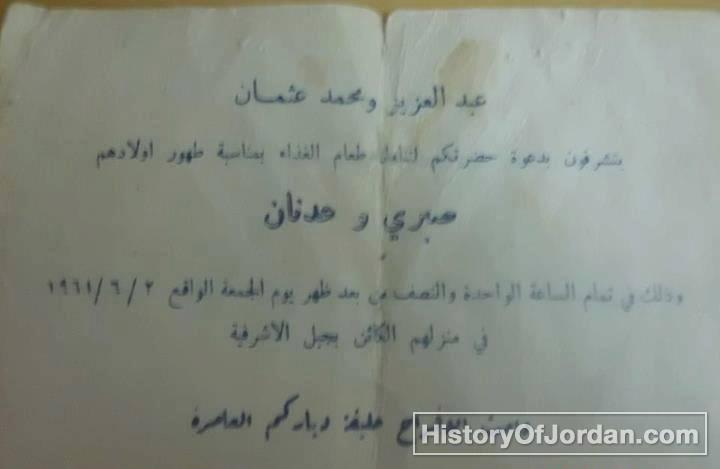 عبد العزيز ومحمد عثمان
يتشرفون بدعوة حضرتكم لتناول طعام الغذاء بمناسبة طهور اولادهم
صبري و عدنان
وذلك في تمام الساعة الواحدة والنصف من بعد ظهر يوم الجمعة الواقع ٢ /٦ /١٩٦١
في منزلهم الكائن بجبل الاشرفية
ودامت الافراح حليفة دياركم العامرة
HistoryOfJordan.com